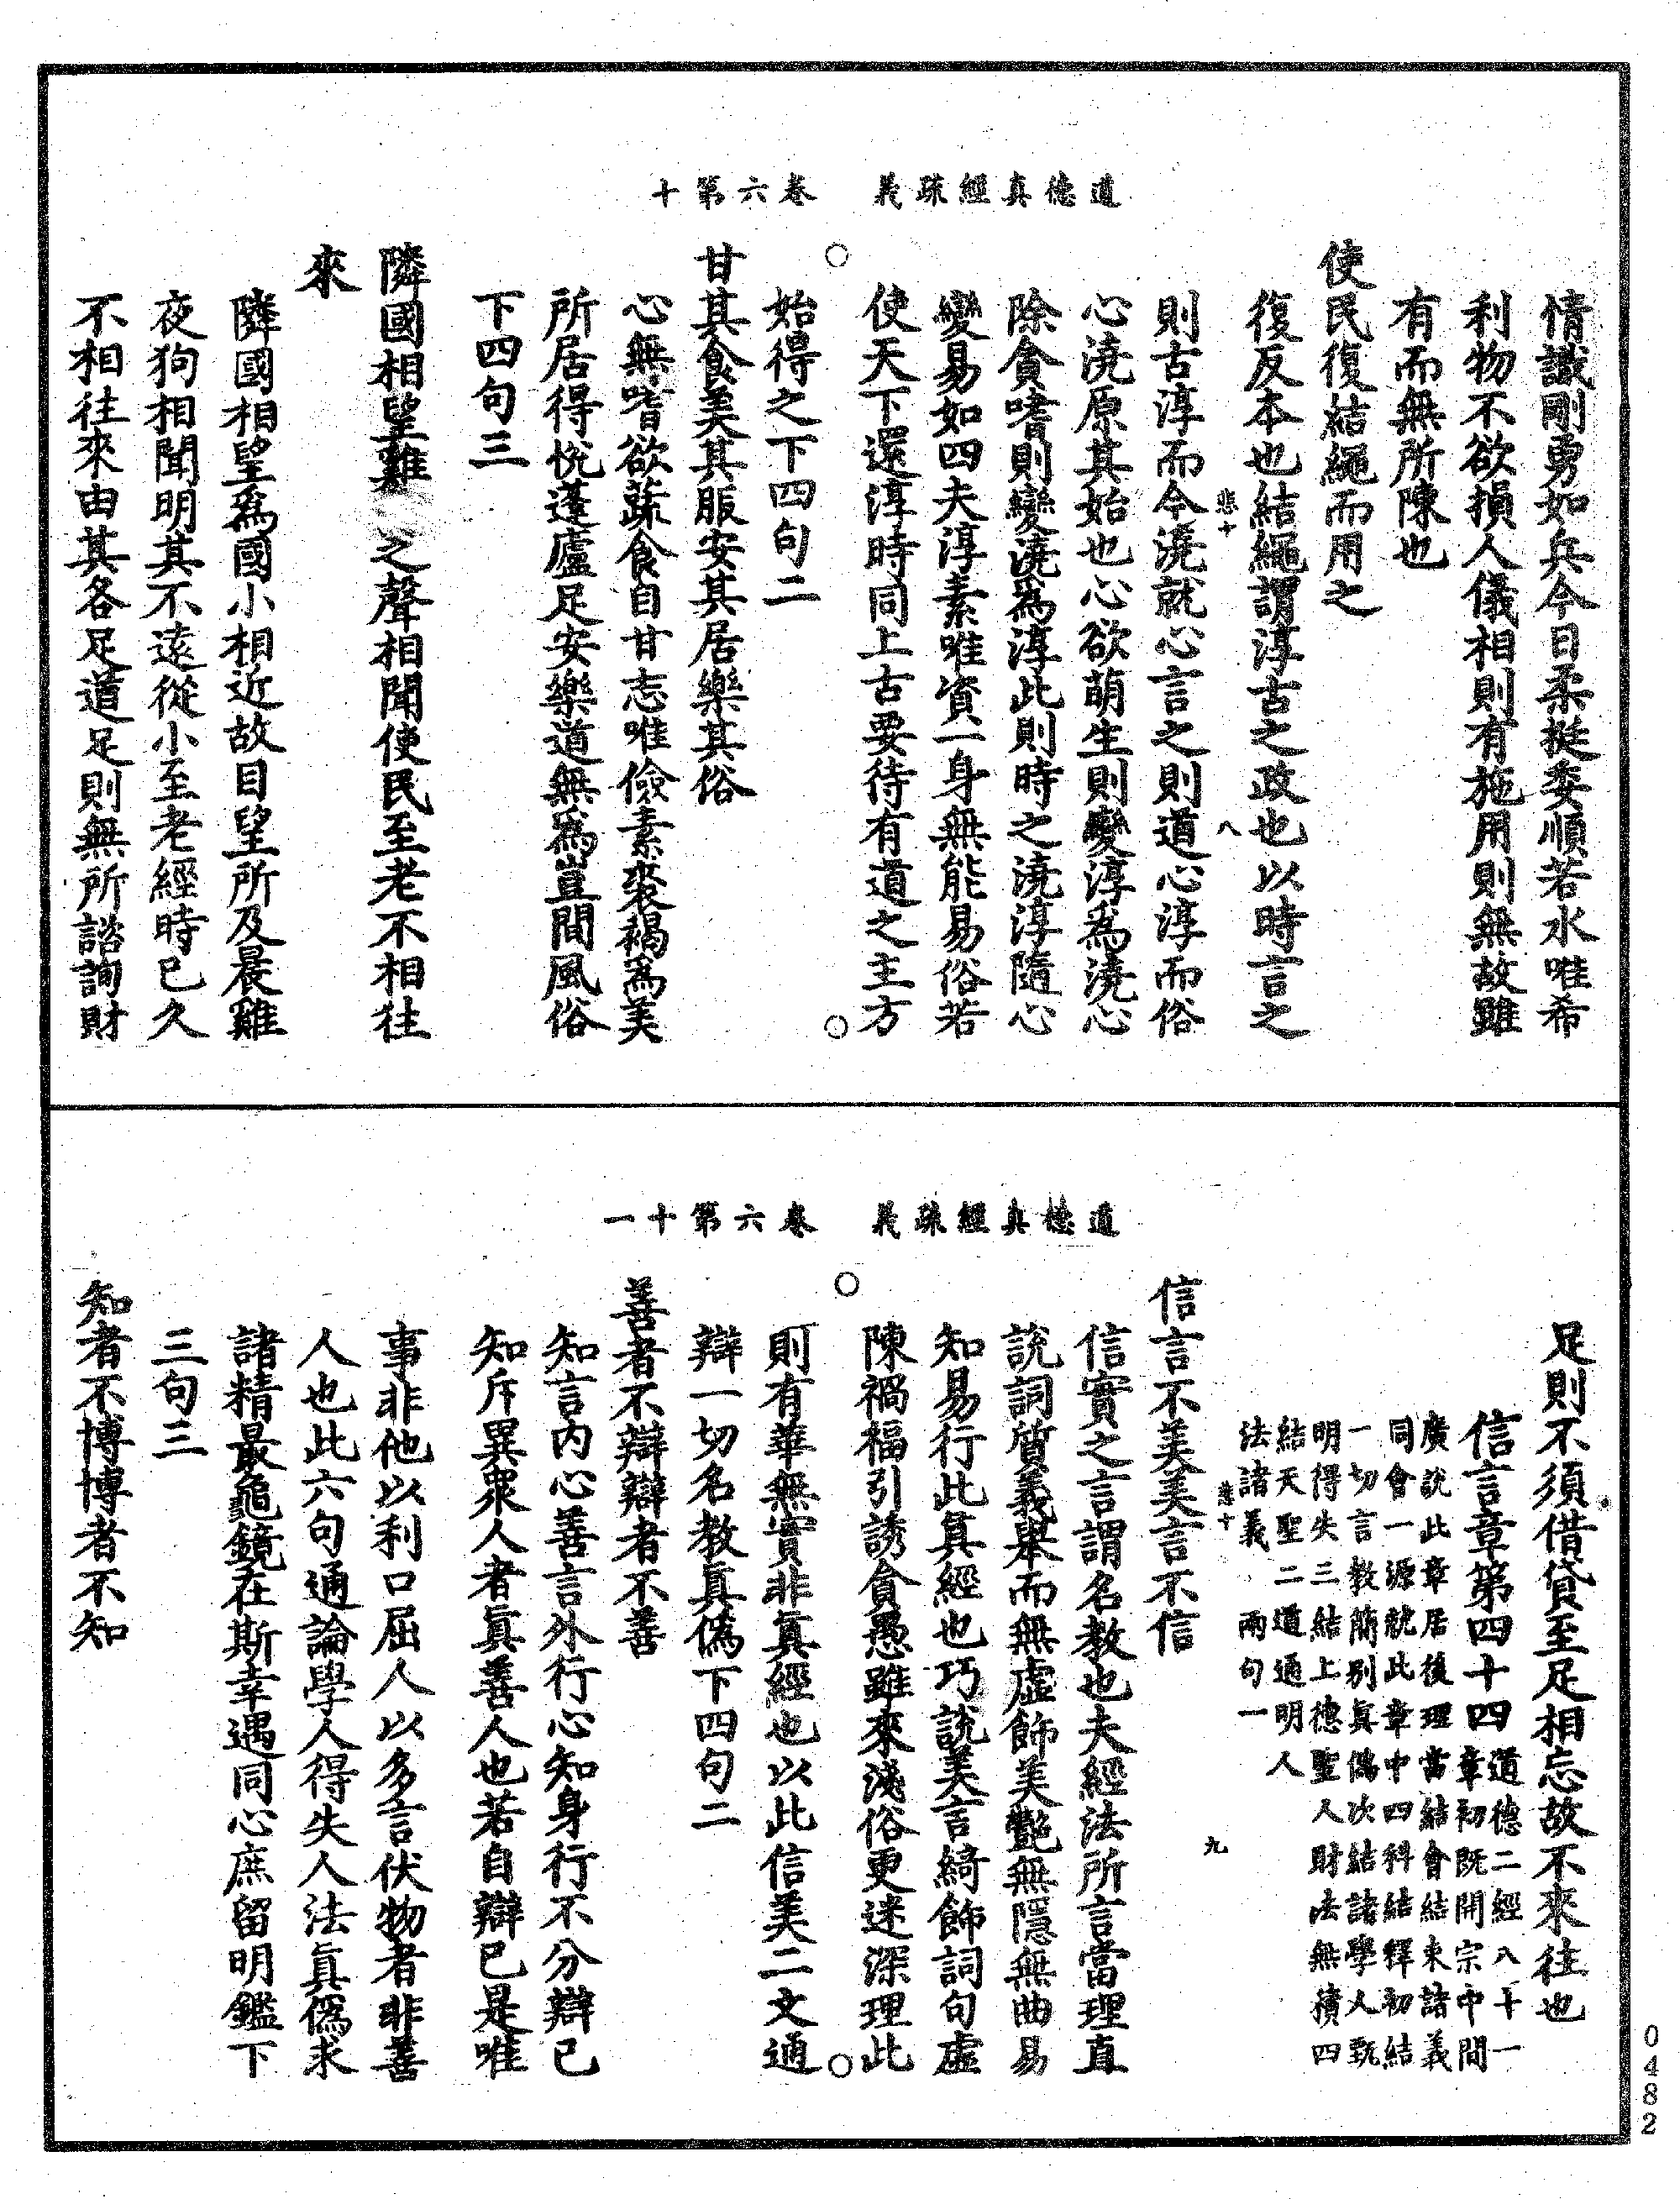 道德真經疏義　卷六第十
情識剛勇如兵今日柔挺委順若水唯希
利物不欲損人儀相則有施用則無故雖
有而無所陳也
使民復結繩而用之
復反本也結繩謂淳古之政也以時言之
悲十　八
則古淳而今澆就心言之則道心淳而俗
心澆原其始也心欲萌生則變淳為澆心
除貪嗜則變澆為淳此則時之澆淳隨心
變易如四夫淳素唯資一身無能易俗若
使天下還淳時同上古要待有道之主方
始得之下四句二
甘其食美其服安其居樂其俗
心無嗜欲蔬食自甘志唯儉素裘褐為美
所居得悅蓬廬足安樂道無為豈間風俗
下四句三
隣國相望雞　之聲相聞使民至老不相往
來
隣國相望為國小相近故目望所及晨雞
夜狗相聞明其不遠從小至老經時已久
不相往來由其各足道足則無所諮詢財
道德真經疏義　卷六第十一
足則不須借貸至足相忘故不來往也
信言章第四十四
道德二經八十一
章初既開宗中間
廣說此章居後理當結會結束諸義
同會一源就此章中四科結釋初結
一切言教簡別真偽次結諸學人甄
明得失三結上德聖人財法無積四
結天聖二道通明人
法諸義　兩句一
悲十　九
信言不美美言不信
信實之言謂名教也夫經法所言當理直
說詞質義舉而無虛飾美艷無隱無曲易
知易行此真經也巧說美言綺飾詞句虛
陳禍福引誘貪愚雖來淺俗更迷深理此
則有華無實非真經也以此信美二文通
辯一切名教真偽下四句二
善者不辯辯者不善
知言內心善言外行心知身行不分辯已
知斥異眾人者真善人也若自辯已是唯
事非他以利口屈人以多言伏物者非善
人也此六句通論學人得失人法真偽求
諸精最龜鏡在斯幸遇同心庶留明鑑下
三句三
知者不博博者不知
0482